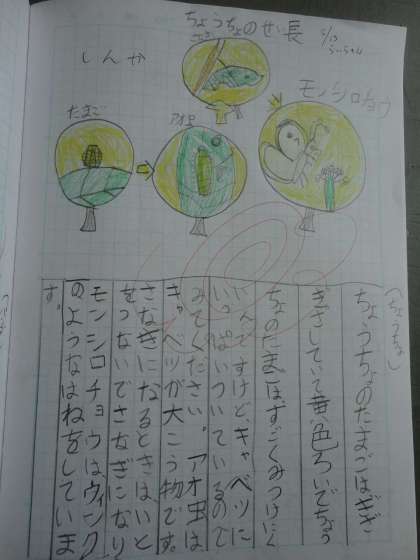 ちょうちょのせい長
しんか
さなぎ
モンシロョウ
たまご
アオ虫
(ちょうちょ)
ちょうちょのたまごはぎざ
ぎさしていて黄色ろいでちょう
ちょのたまごはすごくみつけにく
にんですけど、キャベツに
いっぱいついているので
みてください。アオ虫は
キャベツが大こう物です。
さなぎになるときはいと
をつないでさなぎになり
モンシロチョウはウィング
のようなはねをしていま
す。